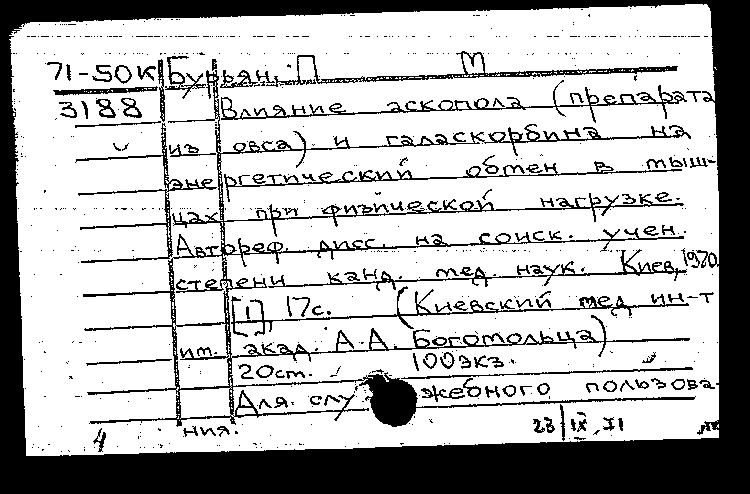 71-50К Бурьян, П М
3188 Влияние аскопола (препарата
из овса) и галаскорбина на
энергетический обмен в мыш-
цах при физической нагрузке.
Автореф. дисс. на соиск. учен.
степени канд. мед. наук. Киев, 1970.
[1], 17с. (Киевский мед ин-т
им. акад. А.А. Богомольца)
20см. 100экз.
Для служебного пользова-
ния.
4 23/IX,71